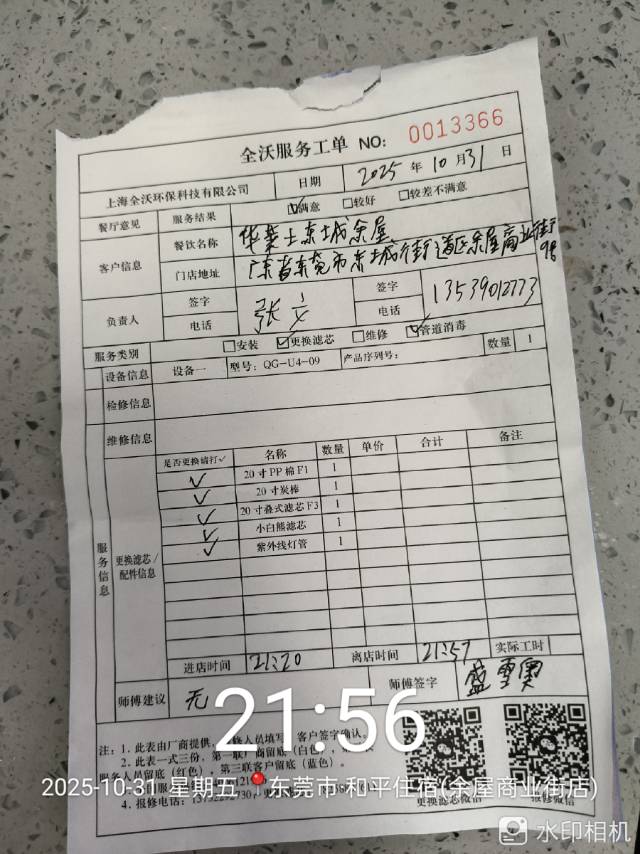 全沃服务工单 NO: 0013366
上海全沃环保科技有限公司 日期 2025 年 10 月 31 日
餐厅意见 服务结果 ☑满意 □较好 □较差不满意
客户信息 餐饮名称 华莱士东城余屋
门店地址 广东省东莞市东城街道区余屋商业街98
负责人 签字 张 签字
电话 电话 13539012773
服务类别 □安装 ☑更换滤芯 □维修 ☑管道消毒
设备信息 设备一 型号: QG-U4-09 产品序列号: 数量 1
检修信息
维修信息
服务信息
更换滤芯/配件信息
是否更换请打✓ 名称 数量 单价 合计 备注
✓ 20寸PP棉F1 1
✓ 20寸炭棒 1
✓ 20寸叠式滤芯F3 1
✓ 小白熊滤芯 1
✓ 紫外线灯管 1
进店时间 21:20 离店时间 21:57 实际工时
师傅建议 无 师傅签字
21:56
注: 1. 此表由厂商提供, 修人员填写, 客户签字确认。
2. 此表一式三份, 第一联厂商留底(白色),
服务人员留底(红色), 第三联客户留底(蓝色)。
2025-10-31 星期五 东莞市·和平住宿(余屋商业街店)
4. 报修电话:
更换滤芯微信 报修微信
水印相机